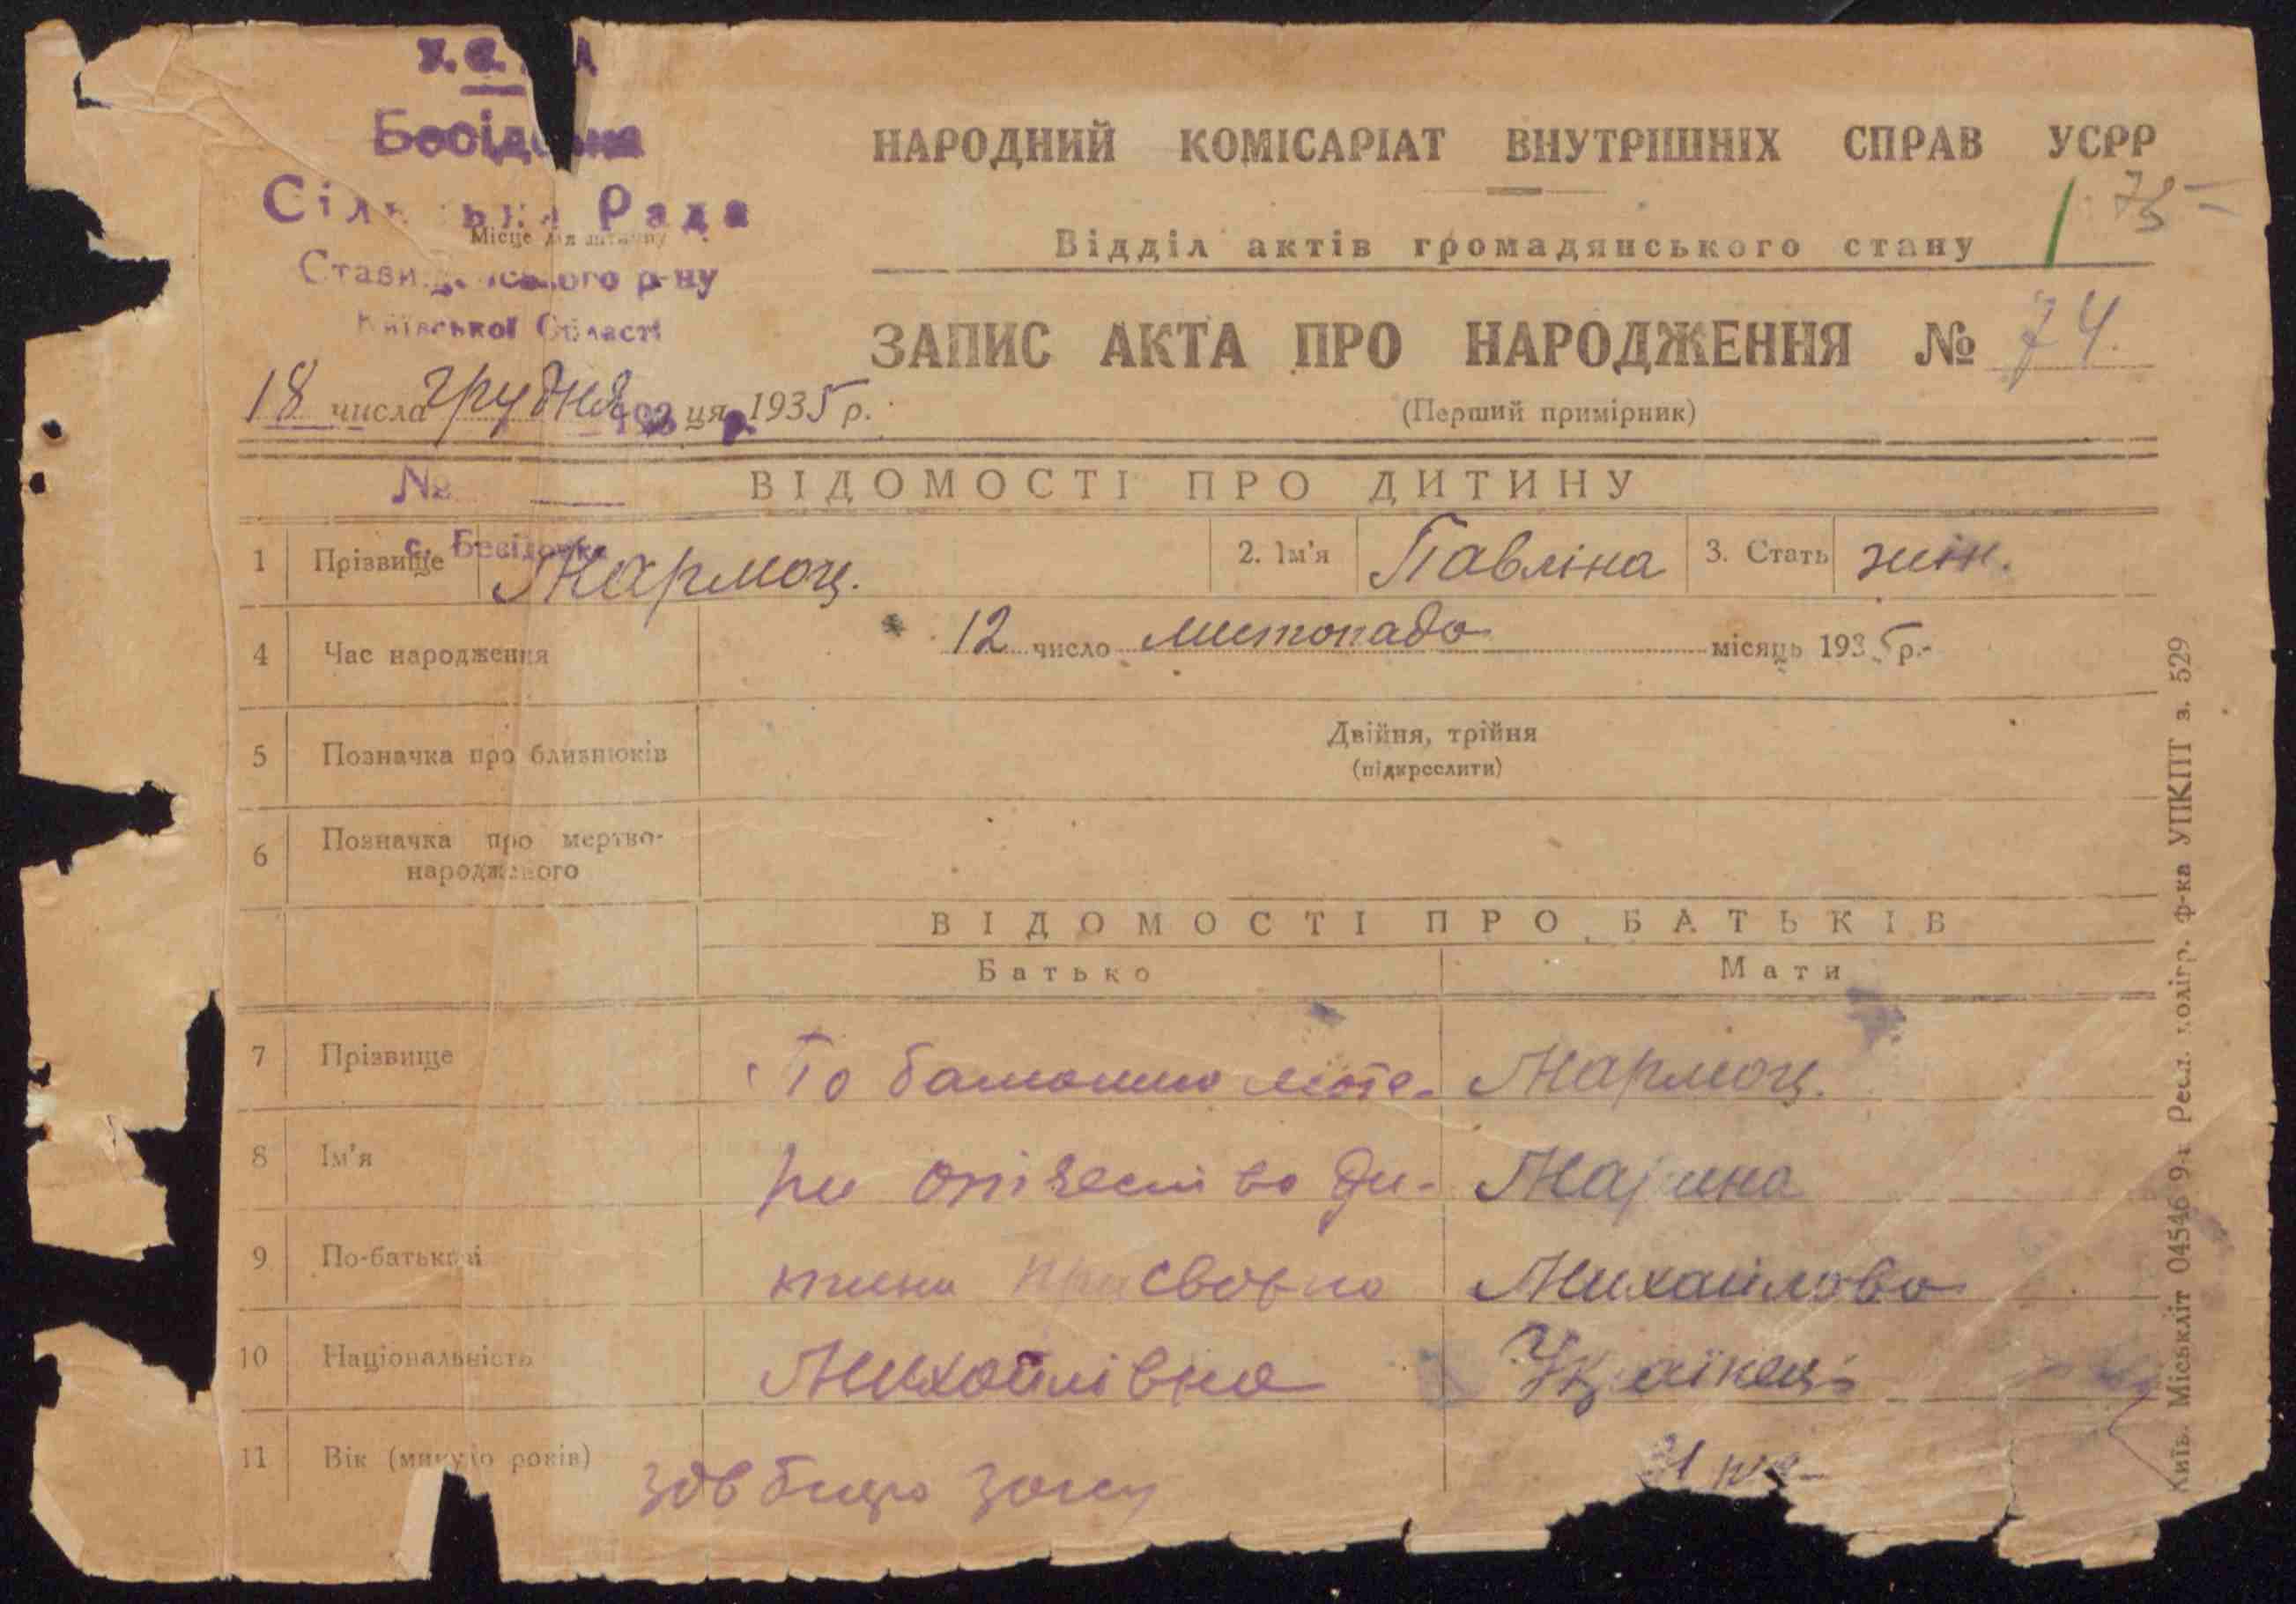 Бесідська
Сільська Рада
Місце для штампу
Ставищенського р-ну
Київської Області
18 числа грудня ця 1935 р.
№
с. Бесідка
НАРОДНИЙ КОМІСАРІАТ ВНУТРІШНІХ СПРАВ УСРР
Відділ актів громадянського стану
ЗАПИС АКТА ПРО НАРОДЖЕННЯ № 74
(Перший примірник)
ВІДОМОСТІ ПРО ДИТИНУ
1 Прізвище 2. Ім'я Павліна 3. Стать жін.
4 Час народження 12 число листопада місяць 1935 р.
5 Позначка про близнюків Двійня, трійня
(підкреслити)
6 Позначка про мертво-
народженого
ВІДОМОСТІ ПРО БАТЬКІВ
Батько Мати
7 Прізвище По бажанню мате-
8 Ім'я ри отізество ди- Марина
9 По-батькові тини присвоєно Михайлова
10 Національність Михайлівна Українець
11 Вік (минуло років) зав бюро загсу 31
Київ. Міськліт 04546 9-а Респ. полігр. ф-ка УПКПТ з. 529